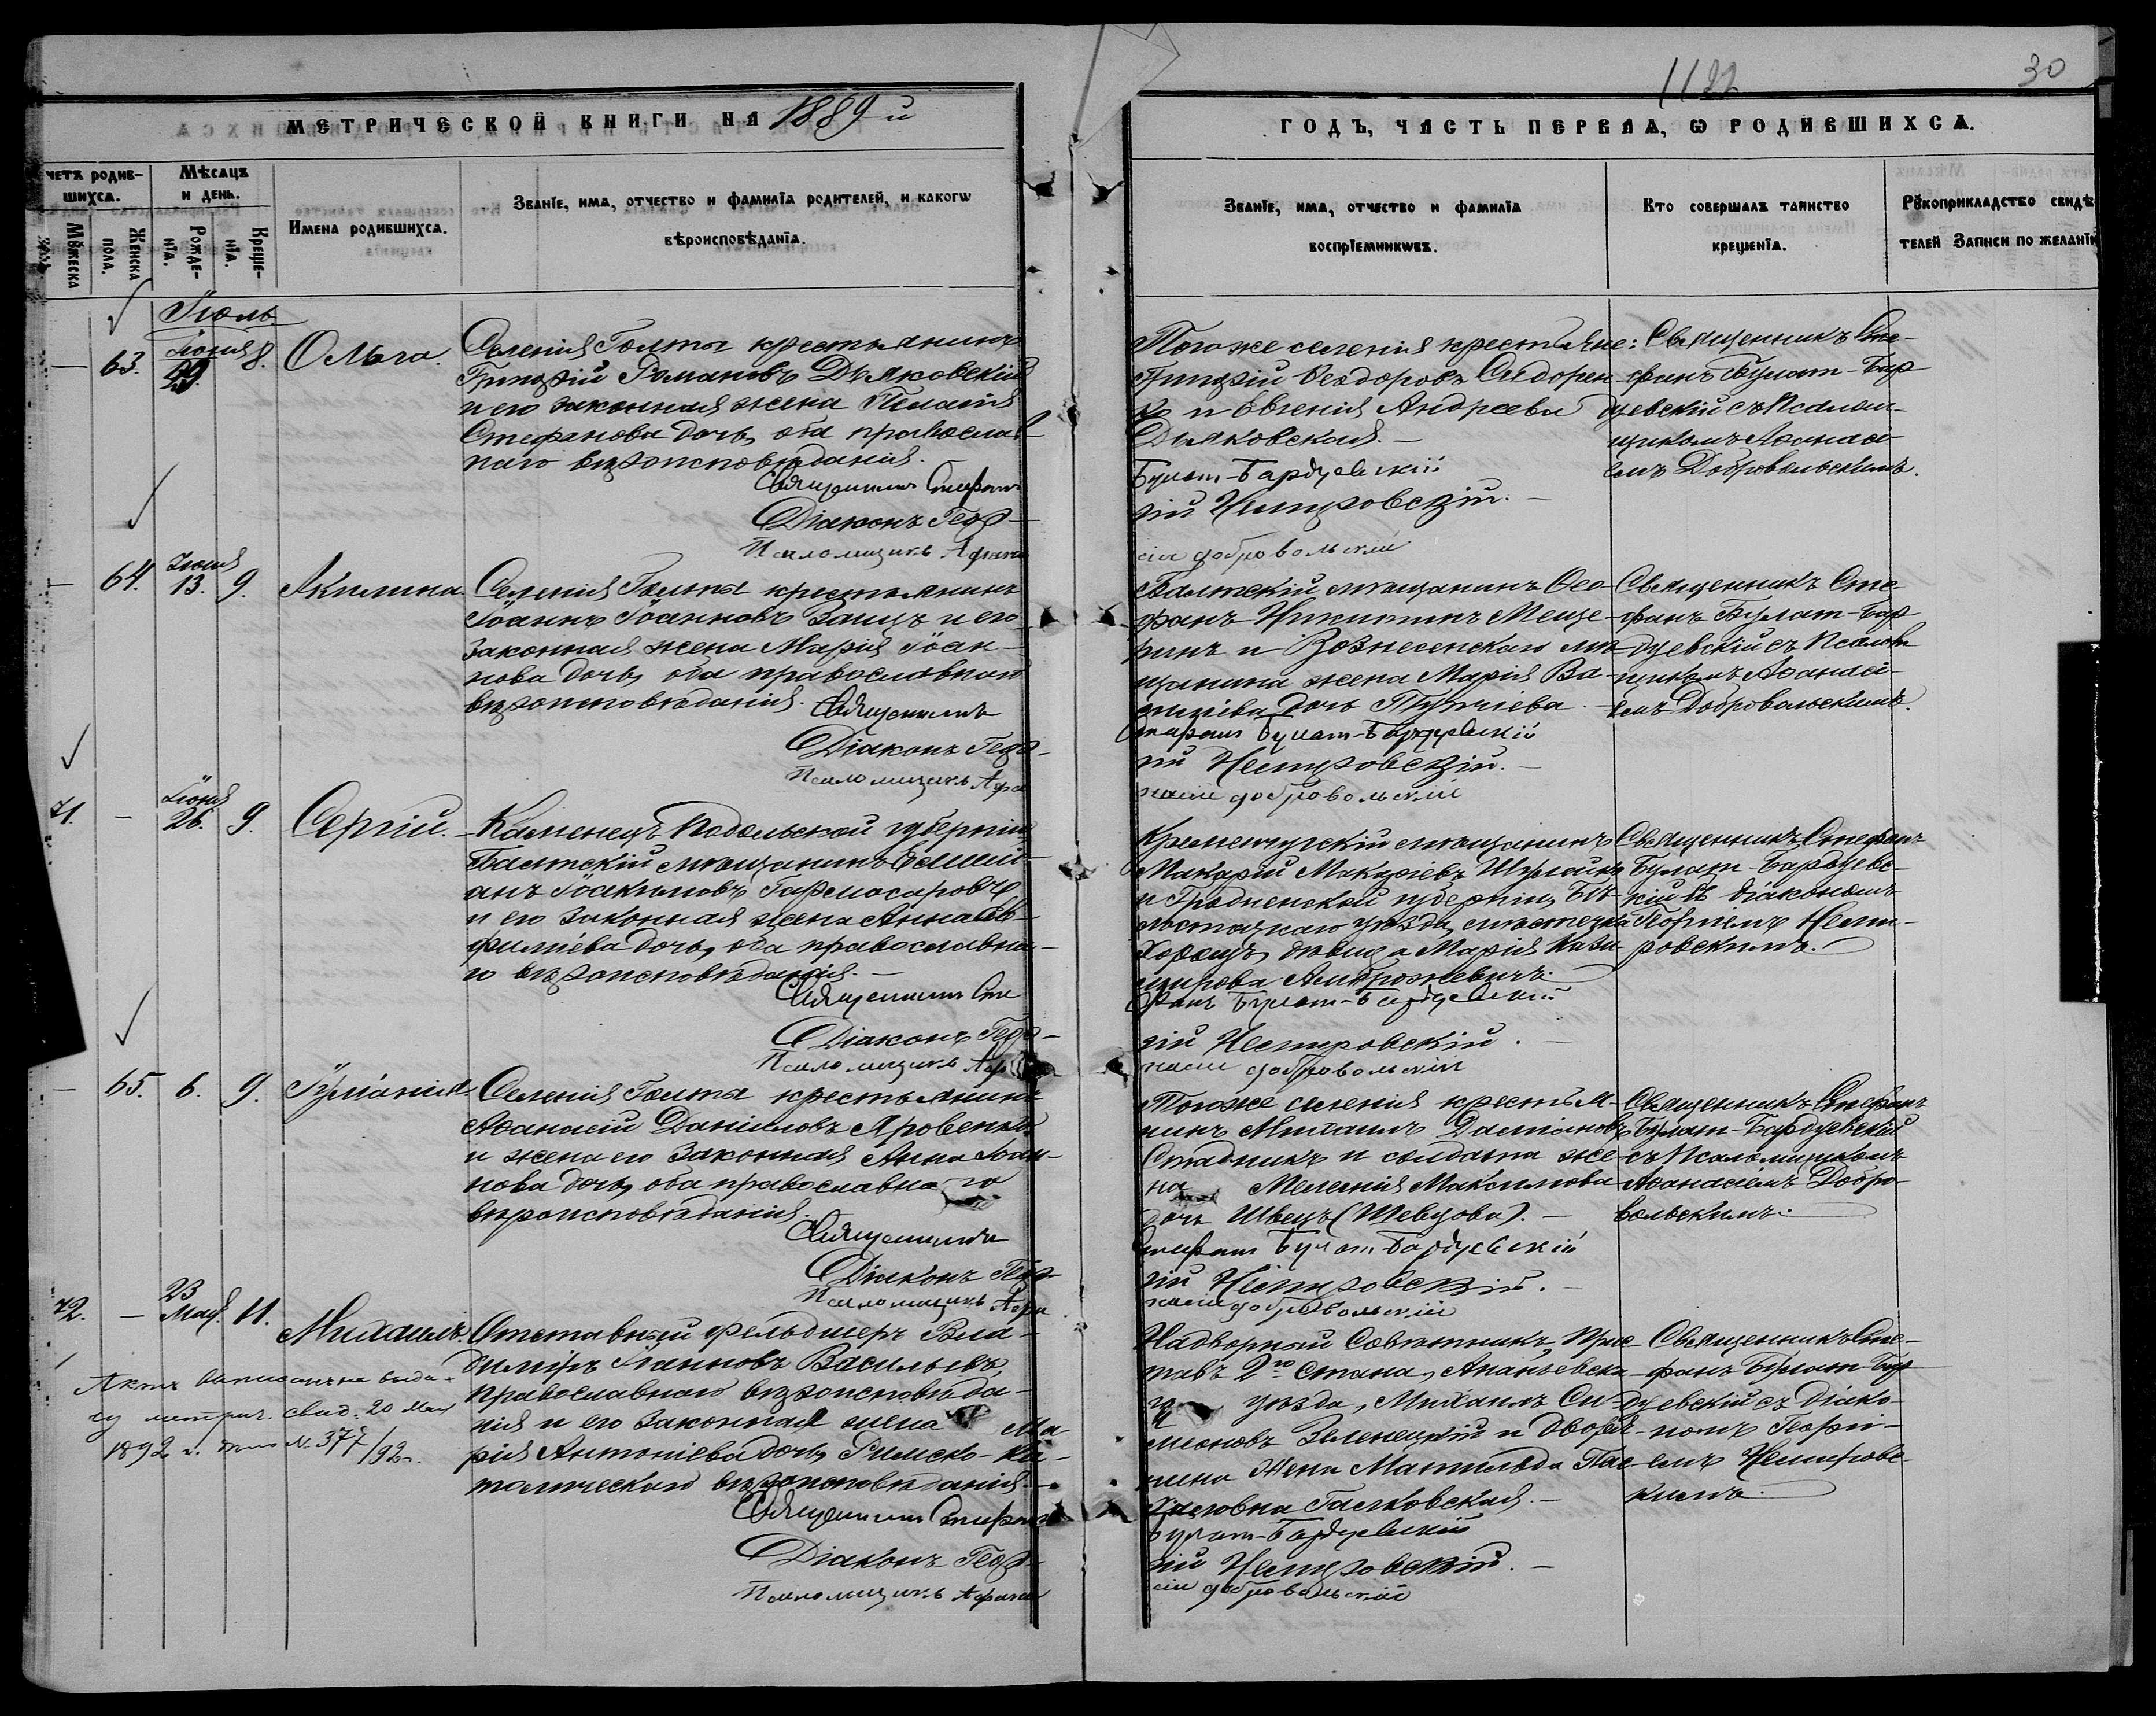 1122
30
МЕТРИЧЕСКОЙ КНИГИ НА 1889 й
ГОДЪ, ЧАСТЬ ПЕРВАѦ, Ѡ РОДИВШИХСѦ.
четъ родив-
шихсѧ.
Мѣсѧцъ
и день.
Мꙋжеска
пола.
Женска
пола.
Рожде-
нїѧ.
Креще-
нїѧ.
Имена родившихсѧ.
Званїе, имѧ, отчество и фамилїѧ родителей, и какогѡ
вѣроисповѣданїѧ.
Званїе, имѧ, отчество и фамилїѧ
воспрїемникѡвъ.
Кто совершалъ таинство
крещенїѧ.
Рꙋкоприкладство свидѣ
телей записи по желанїю
Іюль
— 63. Іюня 29. 8. Ольга.
Селенія Голты крестьянинъ
Григорій Романовъ Дьяковскій
и его законная жена Пелагія
Стефанова дочь, оба православ-
наго вѣроисповѣданія.
Священникъ Стефанъ
Діаконъ Геор-
Псаломщикъ Афана
Тогоже селенія крестьяне:
Григорій Ѳеодоровъ Сидорен-
ко и Евгенія Андреева
Дьяковская. —
Булат-Бардуевскій
гій Нестровскій. —
сій Добровольскій
Священникъ Сте-
фанъ Булат-Бар
дуевскій съ Псалом-
щикомъ Аѳанасі-
емъ Добровольскимъ.
— 64. Іюня 13. 9. Акилина.
Селенія Голты крестьянинъ
Іоаннъ Іоанновъ Заицъ и его
законная жена Марія Іоан-
нова дочь, оба православнаго
вѣроисповѣданія.
Священникъ
Діаконъ Геор-
Псаломщикъ Афа
Балтскій мѣщанинъ Ѳео-
фанъ Никитинъ Меще-
ринъ и Вознесенскаго мѣ-
щанина жена Марія Ва-
силіева дочь
Стефанъ Булат-Бардуевскій
гій Нестровскій. —
насій Добровольскій
Священникъ Сте-
фанъ Булат-Бар
дуевскій съ Псалом
щикомъ Аѳанасі-
емъ Добровольскимъ.
71. — Іюня 26. 9. Сергій.
Каменецъ Подольской губерніи
Балтскій мѣщанинъ
анъ Іоакимовъ
и его законная жена Анна
филіева дочь, оба православна-
го вѣроисповѣданія. —
Священникъ Сте
Діаконъ Геор-
Псаломщикъ Аф
Кременчугскій мѣщанинъ
Макарій Макаріевъ
и Гродненской губерніи, Бѣ-
лостоцкаго уѣзда, мѣстечка
Хорощъ, дѣвица Марія Кази-
мирова Амброжевичъ.
фанъ Булат-Бардуевскій
гій Нестровскій. —
насій Добровольскій
Священникъ Стефанъ
Булат-Бардуевс-
кій съ діакономъ
Георгіемъ Нест-
ровскимъ.
— 65. 6. 9. Іуліанія.
Селенія Голта крестьянинъ
Аѳанасій Даніиловъ Яровенко
и жена его законная Анна Іоан-
нова дочь, оба православнаго
вѣроисповѣданія.
Священникъ
Діаконъ Геор-
Псаломщикъ Афа
Тогоже селенія крестья-
нинъ Михаилъ Даміановъ
Стадникъ и солдата же-
на Меланія Максимова
дочь Швецъ (Шевцова). —
Стефанъ Булат-Бардуевскій
гій Нестровскій. —
насій Добровольскій
Священникъ Стефанъ
Булат-Бардуевскій
съ Псаломщикомъ
Аѳанасіемъ Добро-
вольскимъ.
72. — 23 Мая. 11. Михаилъ.
Отставный фельдшеръ Вла-
диміръ Іоанновъ Васильевъ,
православнаго вѣроисповѣда-
нія и его законная жена Ма
рія Антоніева дочь, Римско-Ка-
толическаго вѣроисповѣданія. —
Священникъ Стефанъ
Діаконъ Геор-
Псаломщикъ Афана
Актъ выписанъ на выда-
чу метрич. свид. 20 Мая
1892 г. № 377/92.
Надворный Совѣтникъ, При-
ставъ 2го стана, Ананьевска-
го уѣзда, Михаилъ Си-
меоновъ Зеленецкій и Дворя-
нина жена Матильда Пас-
халовна Галковская. —
Булат-Бардуевскій
гій Нестровскій. —
сій Добровольскій
Священникъ Сте-
фанъ Булат-Бар
дуевскій съ Діако-
номъ Георгі-
емъ Нестровс-
кимъ.